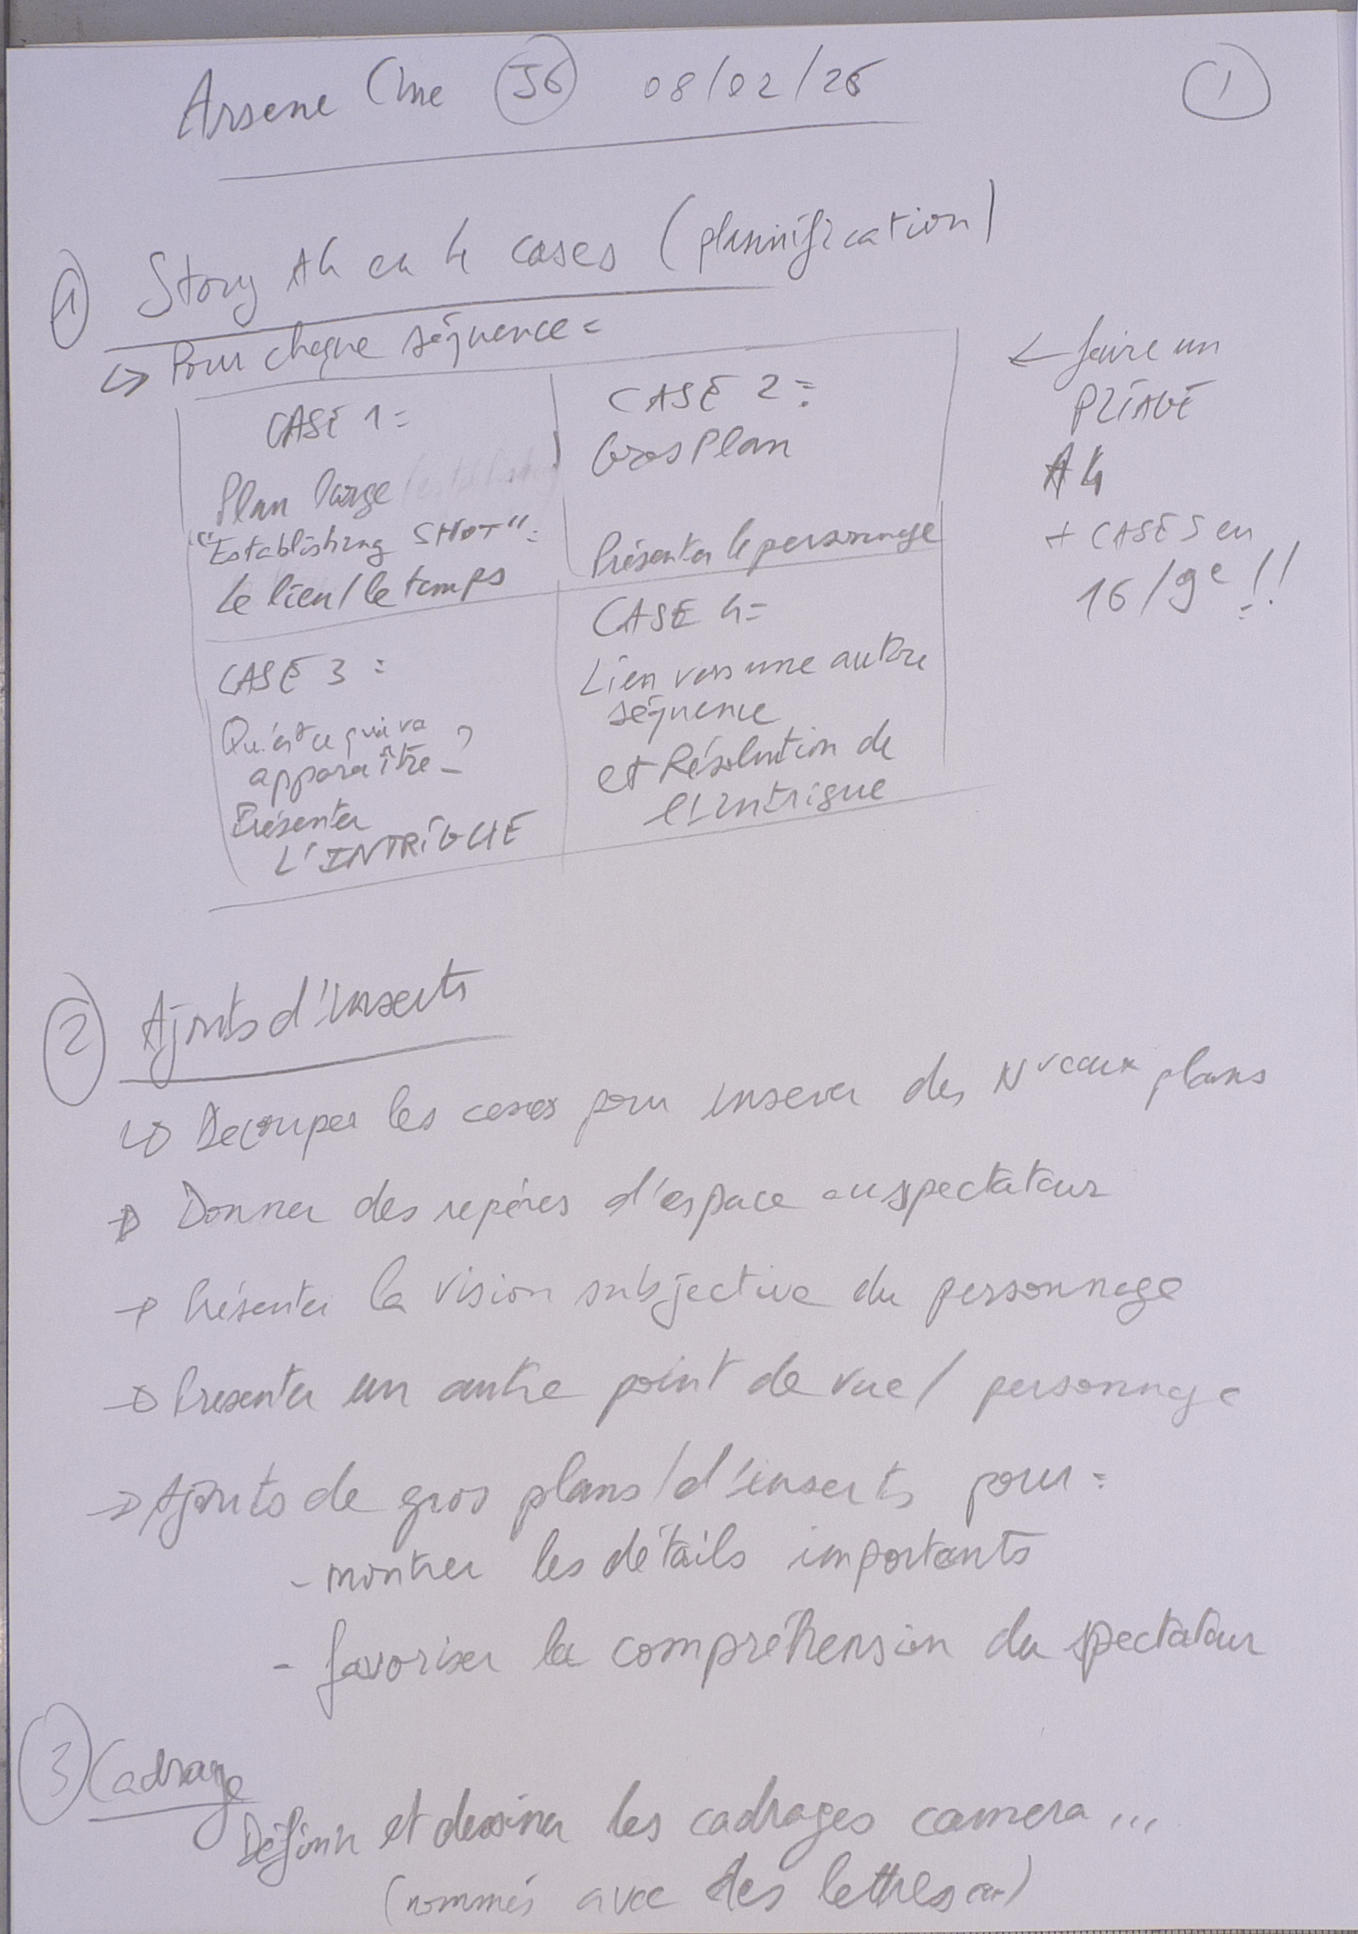 Arsene Cine J6 08/02/26
1
1 Story A4 en 4 cases (planification)
↳ Pour chaque séquence =
CASE 1 =
Plan large
"Establishing SHOT" =
Le lieu / le temps
CASE 2 =
Gros Plan
Présenter le personnage
CASE 3 =
Qu'est ce qui va
apparaître ?
Présenter
L'INTRIGUE
CASE 4 =
Lien vers une autre
séquence
et Résolution de
l'Intrigue
← faire un
PLIAGE
A4
+ CASES en
16/9e !!
2 Ajouts d'inserts
↳ Decouper les cases pour inserer des Nveaux plans
→ Donner des repères d'espace au spectateur
→ Présenter la vision subjective du personnage
→ Presenter un autre point de vue / personnage
→ Ajouts de gros plans / d'inserts pour :
- montrer les détails importants
- favoriser la compréhension du spectateur
3 Cadrage
Définir et dessiner les cadrages camera ...
(nommés avec des lettres )